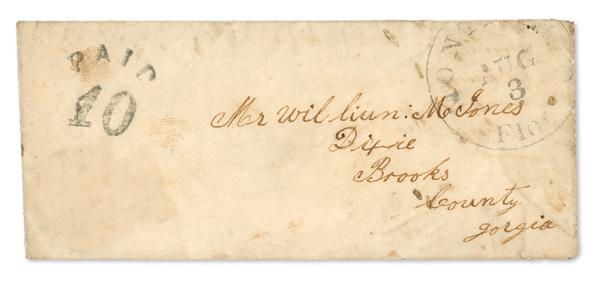 PAID
10
AUG
3
Flo
Mr Williun: M Jones
Dixie
Brooks
County
gorgia